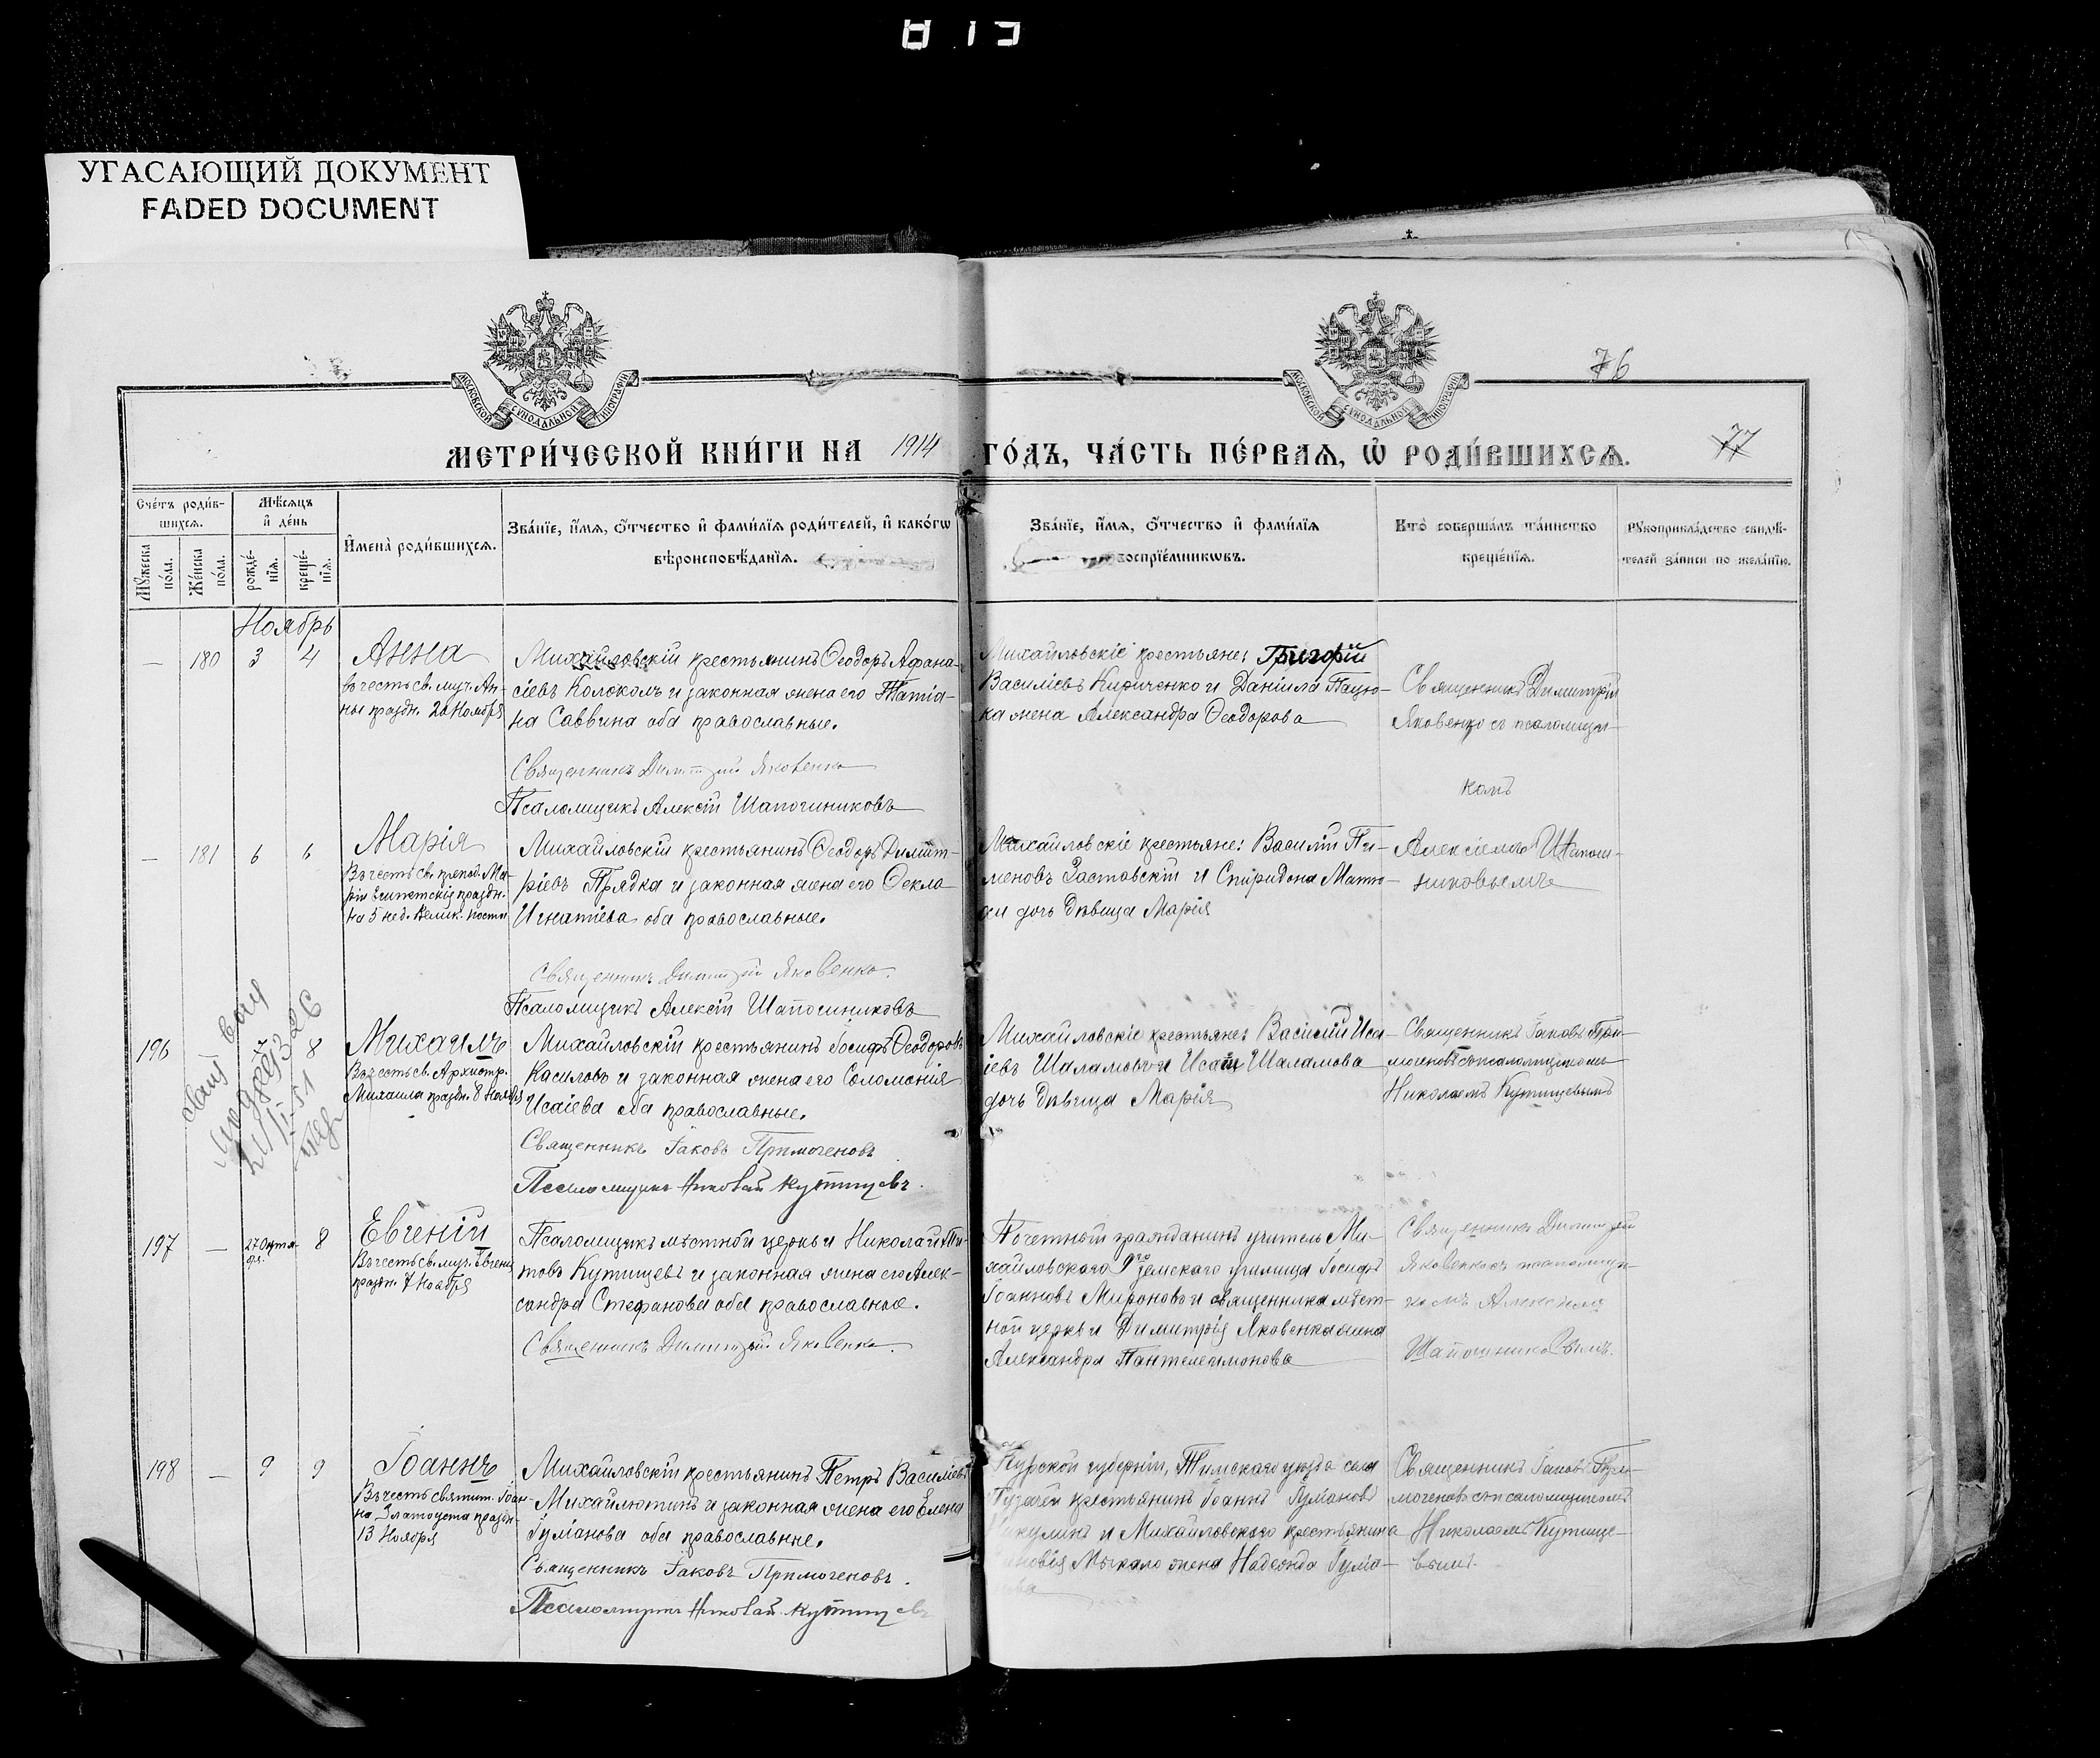 УГАСАЮЩИЙ ДОКУМЕНТ
FADED DOCUMENT
МОСКОВСКОЙ СУНОДАЛЬНОЙ ТИПОГРАФІИ
МОСКОВСКОЙ СУНОДАЛЬНОЙ ТИПОГРАФІИ
76
МЕТРИ́ЧЕСКОЙ КНИ́ГИ НА 1914 ГО́ДЪ, ЧА́СТЬ ПЕ́РВАѦ, Ѡ РОДИ́ВШИХСѦ.
77
Сче́тъ роди́в-
шихсѧ.
Мꙋжеска по́ла.
Же́нска по́ла.
Мѣ́сѧцъ
и де́нь
рожде́-
нїѧ.
креще́-
нїѧ.
Имена̀ роди́вшихсѧ.
Зва́нїе, и́мѧ, ѻ́тчество и фами́лїѧ роди́телей, и како́гѡ
вѣроисповѣ́данїѧ.
Зва́нїе, и́мѧ, ѻ́тчество и фами́лїѧ
воспрїе́мникѡвъ.
Кто̀ соверша́лъ та́инство
креще́нїѧ.
Рꙋкоприкла́дство свидѣ́-
телей за́писи по жела́нїю.
Ноябрь
— 180 3 4
Анна
въ честь св. муч. Ан-
ны праздн. 20 Ноября
Михайловскій крестьянинъ Ѳеодоръ Афана-
сіевъ Колоколъ и законная жена его Татіа-
на Саввина оба православные.
Священникъ Димитрій Яковенко
Псаломщикъ Алексій Шапошниковъ
Михайловскіе крестьяне: Григорій
Василіевъ Кириченко и Даніила Пацю-
ка жена Александра Ѳеодорова
Священникъ Димитрій
Яковенко съ псаломщи-
комъ
— 181 6 6
Марія
Въ честь св. препод. Ма-
ріи Египетскія праздн.
на 5 нед. Велик. поста
Михайловскій крестьянинъ Ѳеодоръ Димит-
ріевъ Прядка и законная жена его Ѳекла
Игнатіева оба православные.
Священникъ Димитрій Яковенко.
Псаломщикъ Алексій Шапошниковъ
Михайловскіе крестьяне: Василій Пи-
меновъ Заставскій и Спиридона
дочь дѣвица Марія
Алексіемъ Шапош-
никовымъ
196 8
Михаилъ
Въ честь св. Архистр.
Михаила праздн. 8 Ноября
Михайловскій крестьянинъ Іосифъ Ѳеодоровъ
Касиловъ и законная жена его Соломонія
Исаіева оба православные.
Священникъ Іаковъ Примогеновъ
Псаломщикъ Николай Кутищевъ.
Михайловскіе крестьяне: Василій Иса-
іевъ Шаламовъ и Исаіи Шаламова
дочь дѣвица Марія
Священникъ Іаковъ При-
могеновъ съ псаломщикомъ
Николаемъ Кутищевымъ
197 — 27 Октя-
бря. 8
Евгеній
Въ честь св. муч. Евгенія
праздн. 7 Ноября
Псаломщикъ мѣстной церкви Николай Ти-
товъ Кутищевъ и законная жена его Алек-
сандра Стефанова оба православные.
Священникъ Димитрій Яковенко.
Почетный гражданинъ учитель Ми-
хайловского земскаго училища Іосифъ
Іоанновъ Мироновъ и священника мѣст-
ной церкви Димитрія Яковенка жена
Александра Пантелеимонова
Священникъ Димитрій
Яковенко съ псаломщи-
комъ Алексіемъ
Шапошниковымъ.
198 — 9 9
Іоаннъ
Въ честь святит. Іоан-
на Златоуста праздн.
13 Ноября
Михайловскій крестьянинъ Петръ Василіевъ
Михайлютинъ и законная жена его Елена
Гуліанова оба православные.
Священникъ Іаковъ Примогеновъ.
Псаломщикъ Николай Кутищевъ
Курской губерніи, Тимскаго уѣзда села
крестьянинъ Іоаннъ
и Михайловского крестьянина
Мыкало жена Надежда
Священникъ Іаковъ При-
могеновъ съ псаломщикомъ
Николаемъ Кутище-
вымъ.